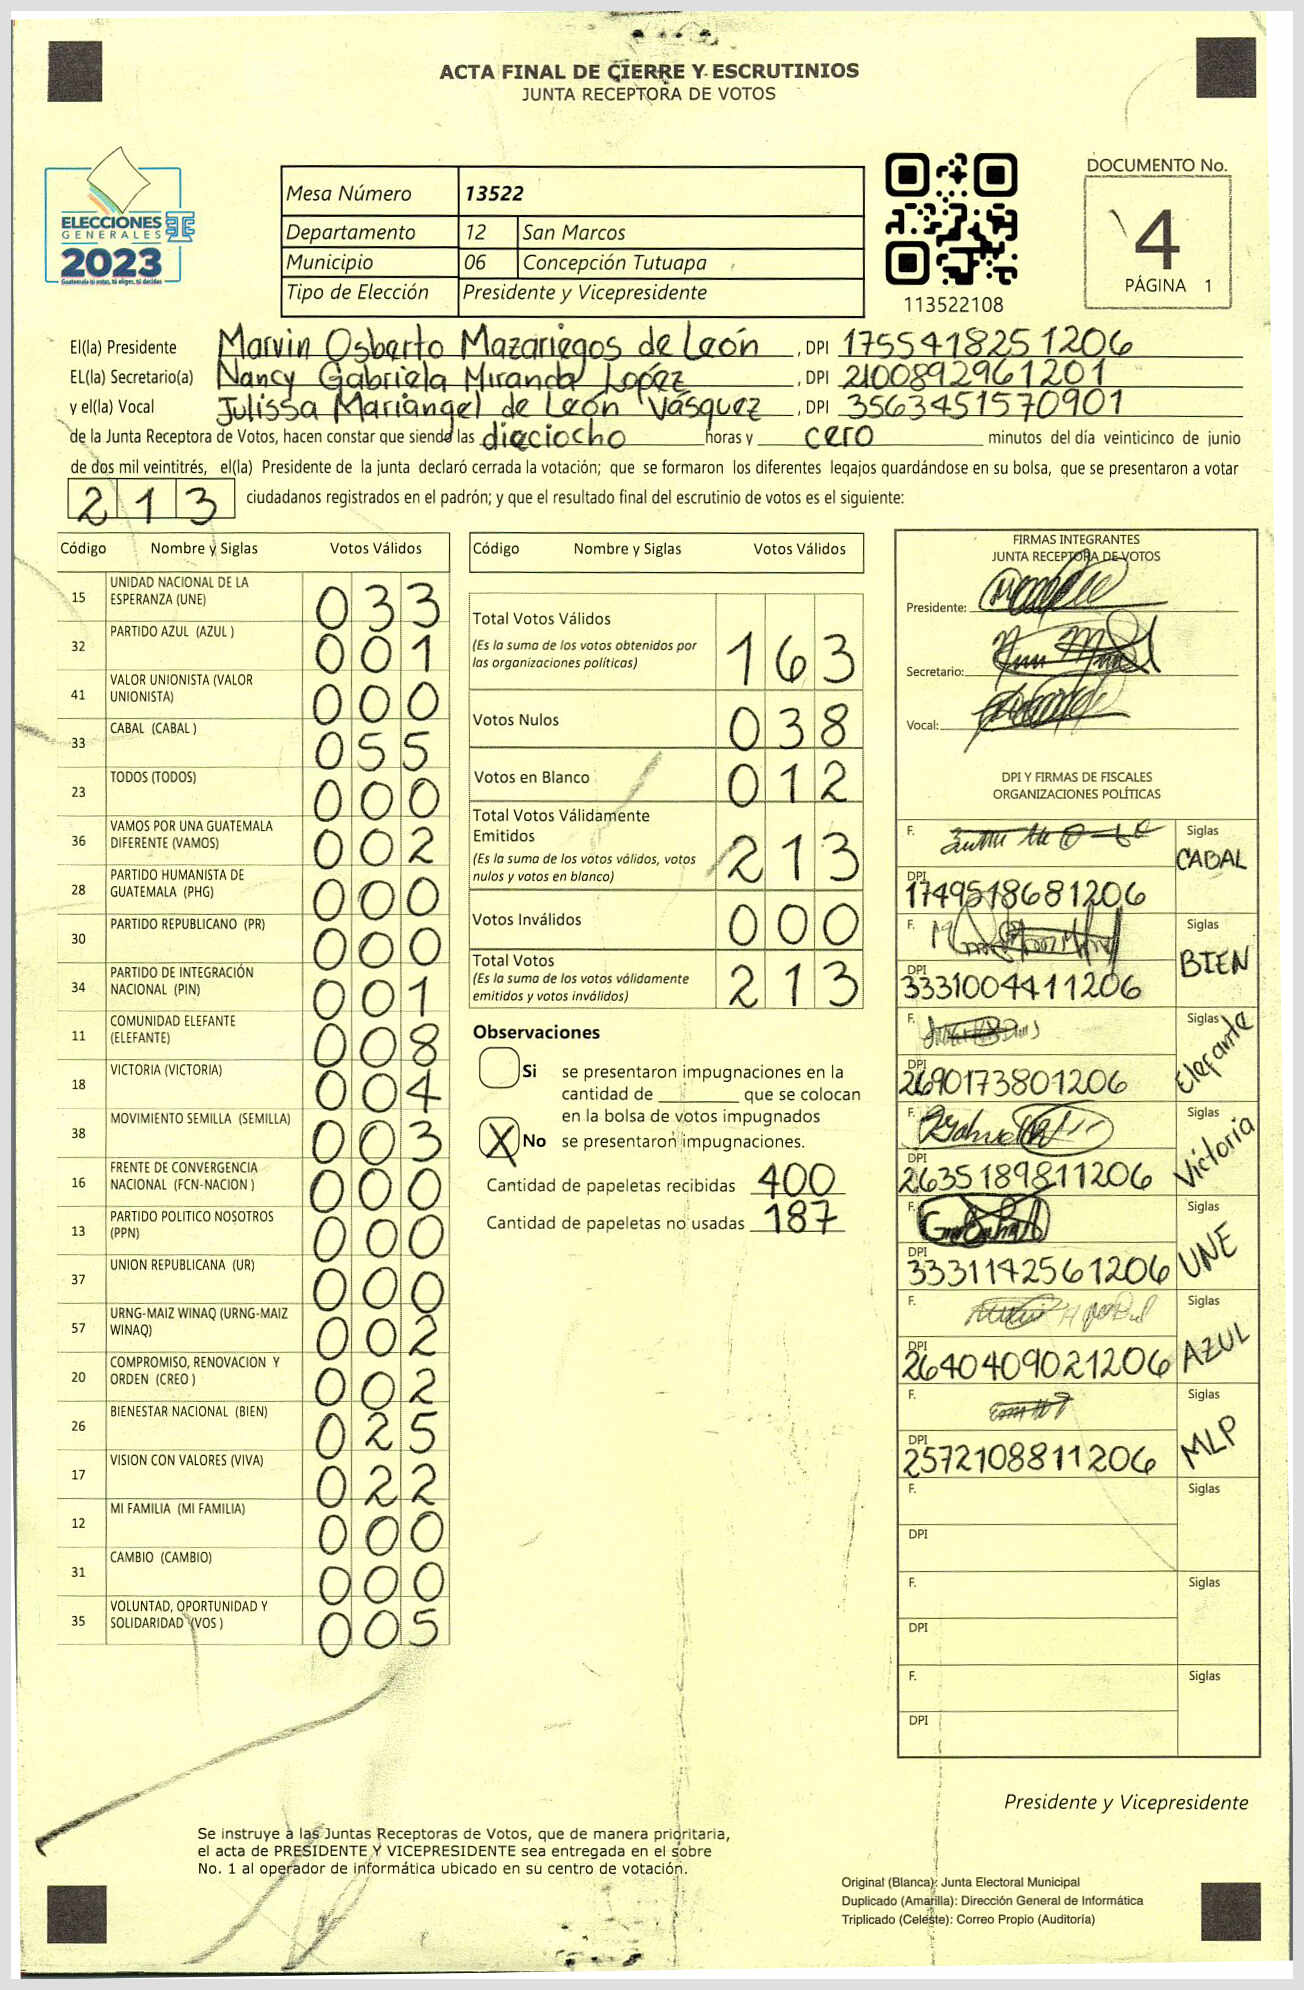 ACTA FINAL DE CIERRE Y ESCRUTINIOS
JUNTA RECEPTORA DE VOTOS
ELECCIONES
GENERALES
2023
Guatemala tú votas, tú eliges, tú decides
Mesa Número 13522
Departamento 12 San Marcos
Municipio 06 Concepción Tutuapa
Tipo de Elección Presidente y Vicepresidente
113522108
DOCUMENTO No.
4
PÁGINA 1
El(la) Presidente Marvin Osberto Mazariegos de León , DPI 1755418251206
EL(la) Secretario(a) Nancy Gabriela Miranda Lopéz , DPI 2100892961201
y el(la) Vocal Julissa Mariangel de León Vásquez , DPI 3563451570901
de la Junta Receptora de Votos, hacen constar que siendo las dieciocho horas y cero minutos del día veinticinco de junio
de dos mil veintitrés, el(la) Presidente de la junta declaró cerrada la votación; que se formaron los diferentes legajos guardándose en su bolsa, que se presentaron a votar
213 ciudadanos registrados en el padrón; y que el resultado final del escrutinio de votos es el siguiente:
Código Nombre y Siglas Votos Válidos
15 UNIDAD NACIONAL DE LA
ESPERANZA (UNE) 033
32 PARTIDO AZUL (AZUL ) 001
41 VALOR UNIONISTA (VALOR
UNIONISTA) 000
33 CABAL (CABAL ) 055
23 TODOS (TODOS) 000
36 VAMOS POR UNA GUATEMALA
DIFERENTE (VAMOS) 002
28 PARTIDO HUMANISTA DE
GUATEMALA (PHG) 000
30 PARTIDO REPUBLICANO (PR) 000
34 PARTIDO DE INTEGRACIÓN
NACIONAL (PIN) 001
11 COMUNIDAD ELEFANTE
(ELEFANTE) 008
18 VICTORIA (VICTORIA) 004
38 MOVIMIENTO SEMILLA (SEMILLA) 003
16 FRENTE DE CONVERGENCIA
NACIONAL (FCN-NACION ) 000
13 PARTIDO POLITICO NOSOTROS
(PPN) 000
37 UNION REPUBLICANA (UR) 000
57 URNG-MAIZ WINAQ (URNG-MAIZ
WINAQ) 002
20 COMPROMISO, RENOVACION Y
ORDEN (CREO ) 002
26 BIENESTAR NACIONAL (BIEN) 025
17 VISION CON VALORES (VIVA) 022
12 MI FAMILIA (MI FAMILIA) 000
31 CAMBIO (CAMBIO) 000
35 VOLUNTAD, OPORTUNIDAD Y
SOLIDARIDAD (VOS ) 005
Código Nombre y Siglas Votos Válidos
Total Votos Válidos
(Es la suma de los votos obtenidos por
las organizaciones políticas) 163
Votos Nulos 038
Votos en Blanco 012
Total Votos Válidamente
Emitidos
(Es la suma de los votos válidos, votos
nulos y votos en blanco) 213
Votos Inválidos 000
Total Votos
(Es la suma de los votos válidamente
emitidos y votos inválidos) 213
Observaciones
Si se presentaron impugnaciones en la
cantidad de que se colocan
en la bolsa de votos impugnados
X No se presentaron impugnaciones.
Cantidad de papeletas recibidas 400
Cantidad de papeletas no usadas 187
FIRMAS INTEGRANTES
JUNTA RECEPTORA DE VOTOS
Presidente:
Secretario:
Vocal:
DPI Y FIRMAS DE FISCALES
ORGANIZACIONES POLÍTICAS
F. Siglas
CABAL
DPI
1749518681206
F. Siglas
BIEN
DPI
3331004411206
F. Siglas
Elefante
DPI
2690173801206
F. Siglas
Victoria
DPI
2635189811206
F. Siglas
UNE
DPI
3331142561206
F. Siglas
AZUL
DPI
2640409021206
F. Siglas
MLP
DPI
2572108811206
F. Siglas
DPI
F. Siglas
DPI
F. Siglas
DPI
Presidente y Vicepresidente
Se instruye a las Juntas Receptoras de Votos, que de manera prioritaria,
el acta de PRESIDENTE Y VICEPRESIDENTE sea entregada en el sobre
No. 1 al operador de informática ubicado en su centro de votación.
Original (Blanca): Junta Electoral Municipal
Duplicado (Amarilla): Dirección General de Informática
Triplicado (Celeste): Correo Propio (Auditoría)